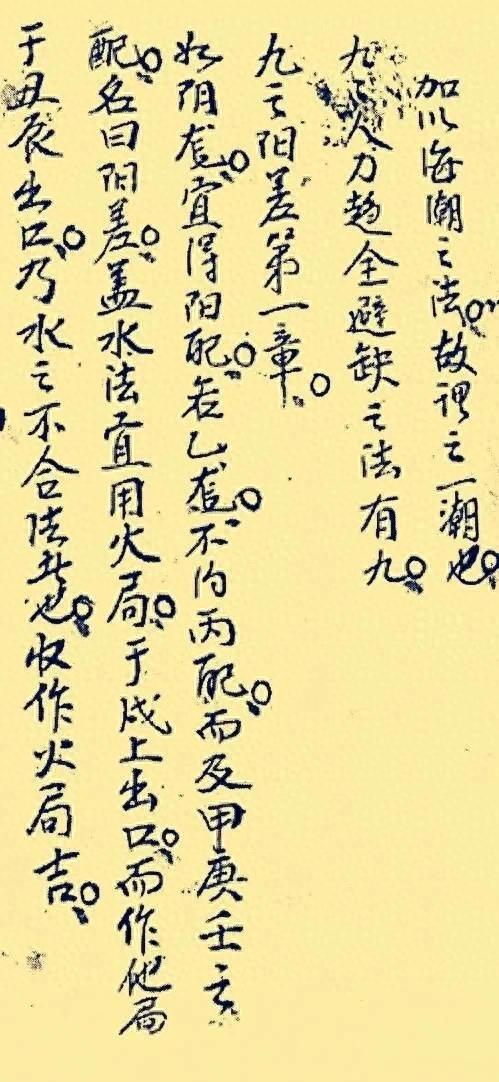 加以海潮之法。故谓之一潮也。
九之人力趋全避缺之法有九。
九之阳差第一章。
如阴龙。宜得阳配。若乙龙。不的丙配。而及甲庚壬之
配。名曰阳差。盖水法宜用火局。于戌上出口。而作他局
于丑辰出口。乃水之不合法者也。收作火局吉。